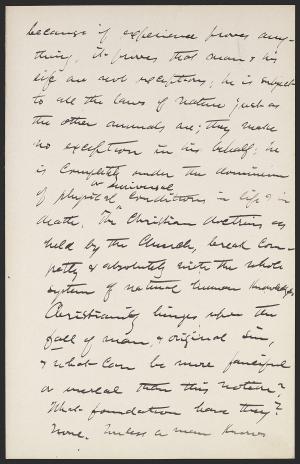 because if experience proves any-
thing, it proves that man & his
life are not exceptions; he is subject
to all the laws of nature just as
the other animals are; they make
no exception in his behalf; he
is completely under the dominion
or universal
of physical conditions in life & in
death. The Christian doctrins as
held by the Church, break com-
pletly & absolutely with the whole
system of natural human knowledge.
Christianity hinges upon the
fall of man, & original sin,
& what can be more fanciful
or unreal than this notion?
What foundation have they?
None. Unless a man knows